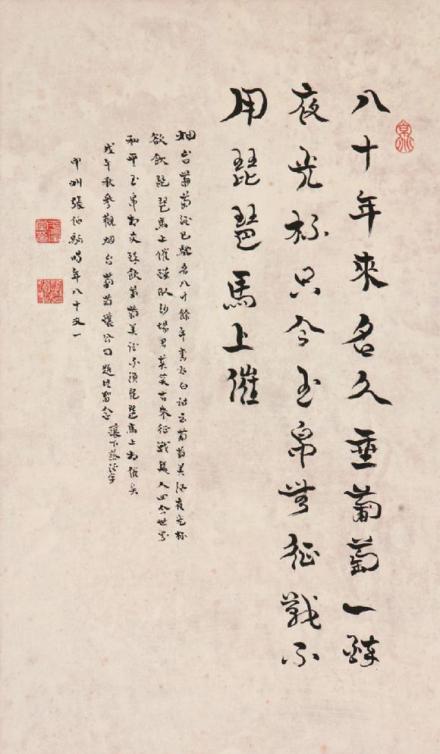 八十年來名久垂葡萄一醉
夜光杯只今玉帛無征戰不
用琵琶馬上催
烟台葡萄酒已馳名八十餘年詩云葡萄美酒夜光杯
欲飲琵琶馬上催醉臥沙場君莫笑古來征戰幾人回今世界
和平玉帛相交雖飲葡萄美酒不須琵琶馬上相催矣
戊午秋參觀烟台葡萄釀公司題此留念 釀下落酒字
中州張伯駒時年八十又一